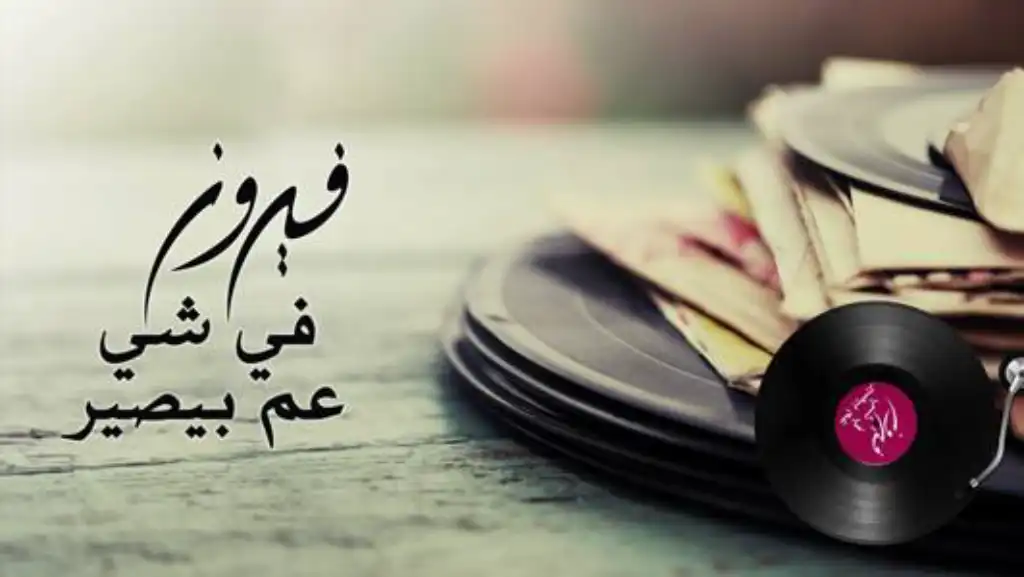 فيروز
في شي
عم بيصير